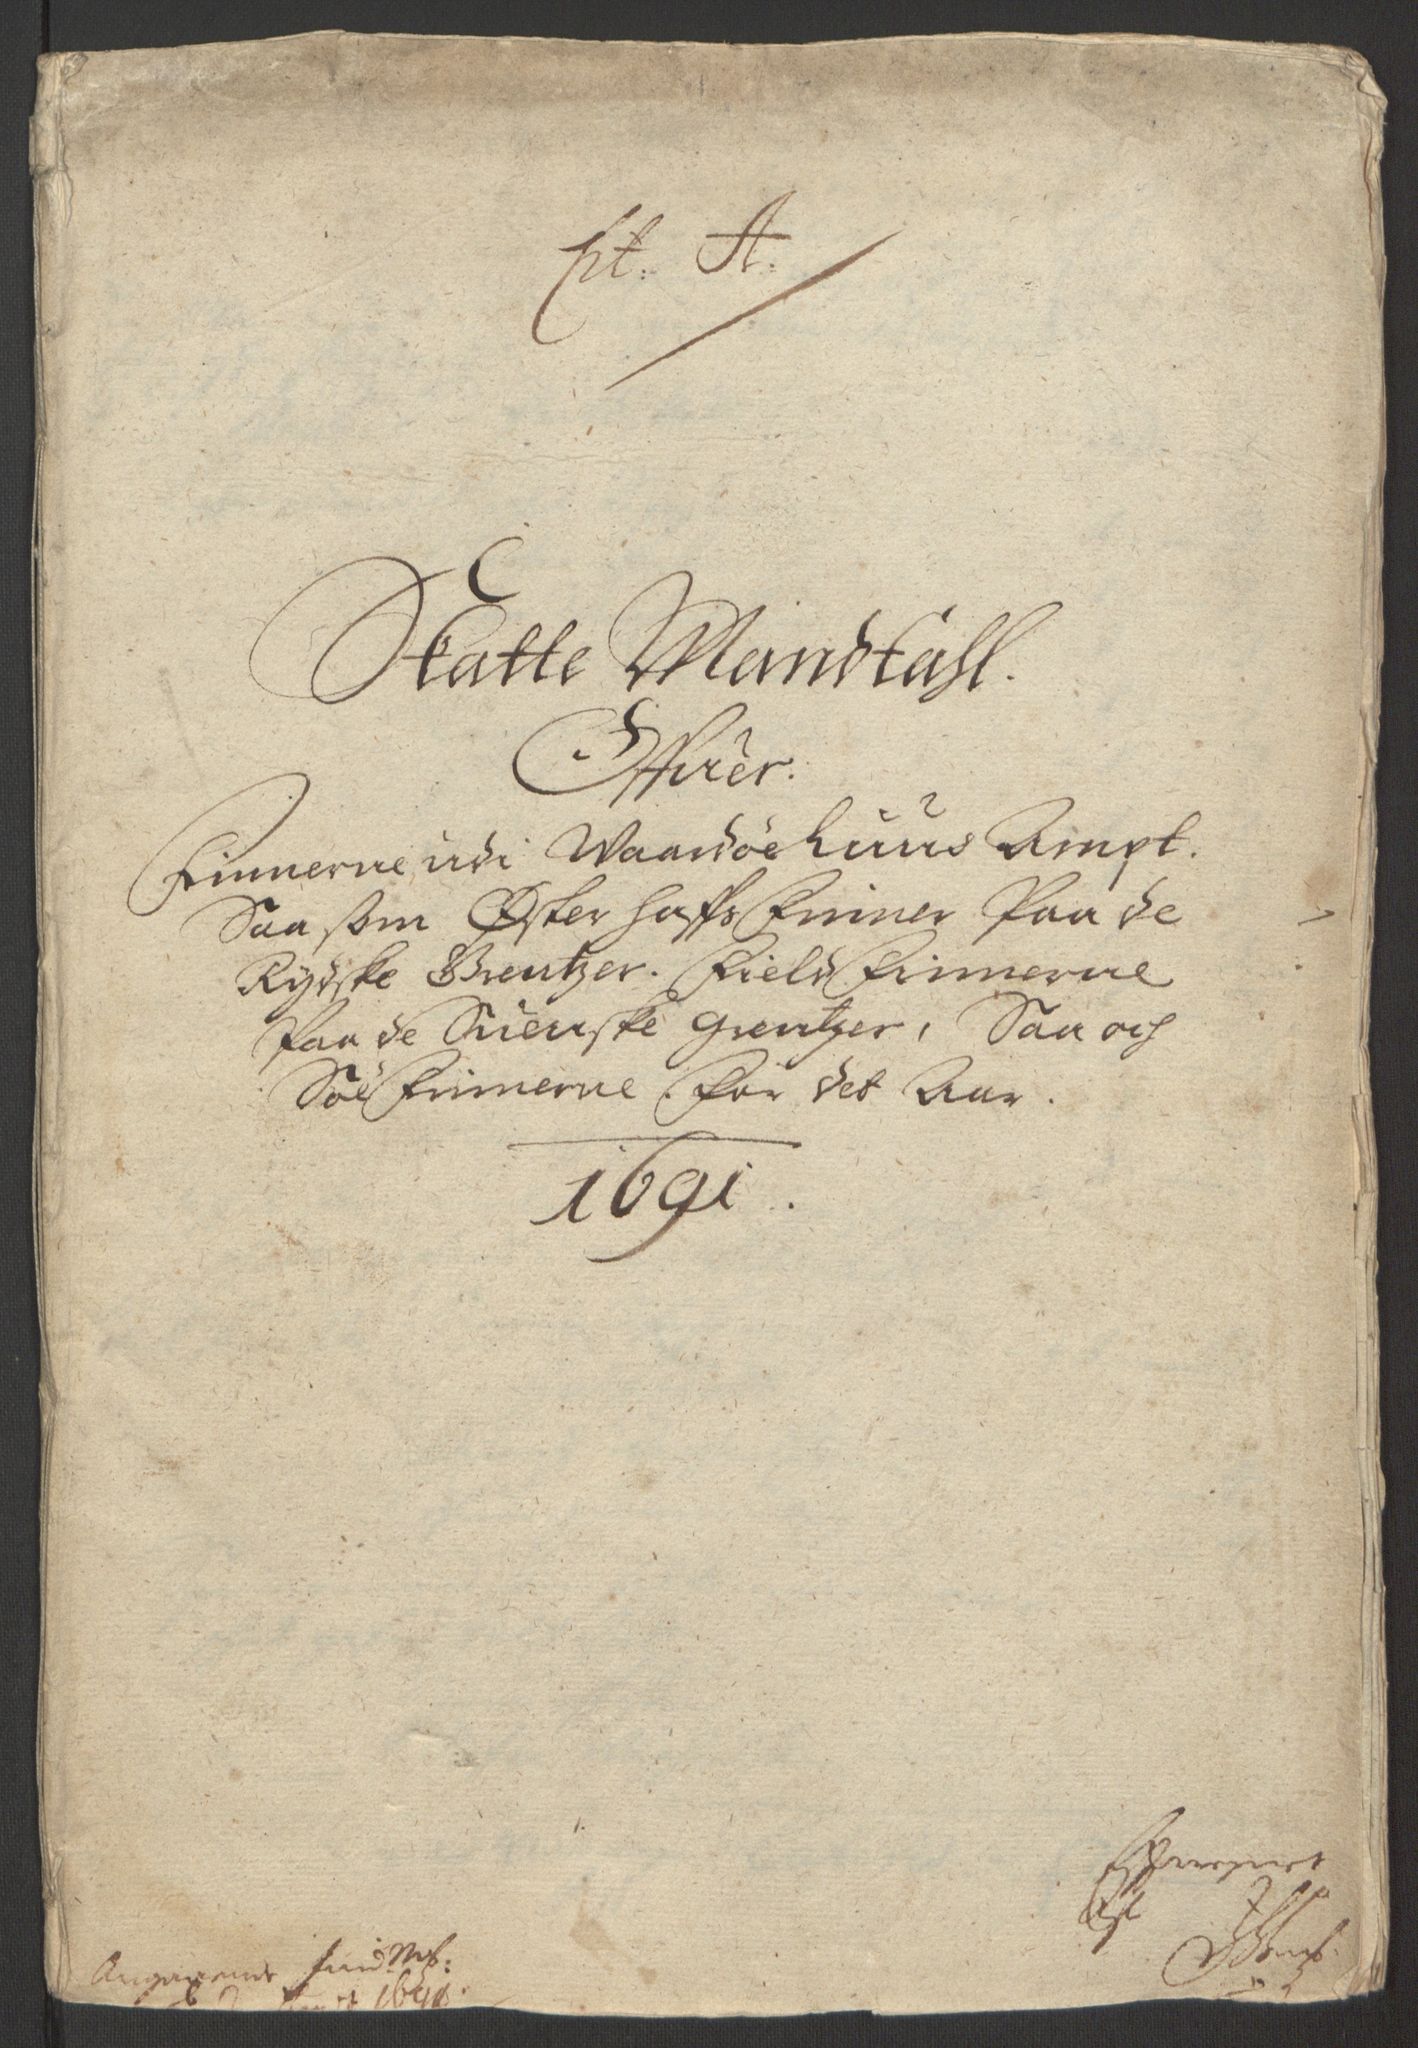 Lit: A:
Skatte Mandtahl.
Offuer.
Finnerne udi Waardøehuus Ampt.
Saa som Øster haffs Finner Paa de
Rydske Grentzer. Field Finnerne
Paa de Suenske Grentzer, Saa och
Söe Finnerne for det Aar.
1691.
Angaaende